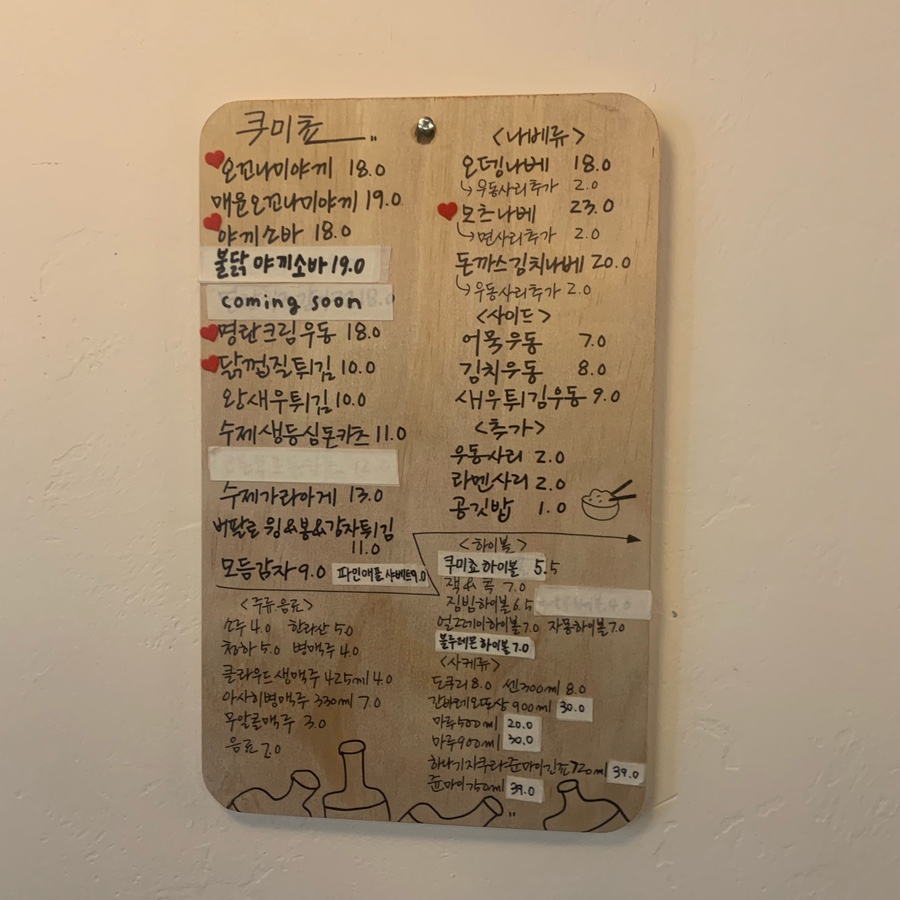 쿠미쵸
오꼬나미야끼 18.0
매운오꼬나미야끼 19.0
야끼소바 18.0
불닭 야끼소바 19.0
coming soon
명란크림우동 18.0
닭껍질튀김 10.0
왕새우튀김 10.0
수제생등심돈카츠 11.0
수제가라아게 13.0
버팔로 윙&봉&감자튀김
11.0
모듬감자 9.0 파인애플 샤베트 9.0
<주류.음료>
소주 4.0 한라산 5.0
청하 5.0 병맥주 4.0
클라우드생맥주 425ml 4.0
아사히병맥주 330ml 7.0
무알콜맥주 3.0
음료 2.0
<나베류>
오뎅나베 18.0
우동사리추가 2.0
모츠나베 23.0
면사리추가 2.0
돈까스김치나베 20.0
우동사리추가 2.0
<사이드>
어묵우동 7.0
김치우동 8.0
새우튀김우동 9.0
<추가>
우동사리 2.0
라멘사리 2.0
공깃밥 1.0
<하이볼>
쿠미쵸하이볼 5.5
잭&콕 7.0
짐빔하이볼 6.5
얼그레이하이볼 7.0 자몽하이볼 7.0
블루레몬하이볼 7.0
<사케류>
도쿠리 8.0 센 300ml 8.0
간바레오또상 900ml 30.0
마루 500ml 20.0
마루 900ml 30.0
하나기자쿠라준마이긴죠 720ml 39.0
39.0